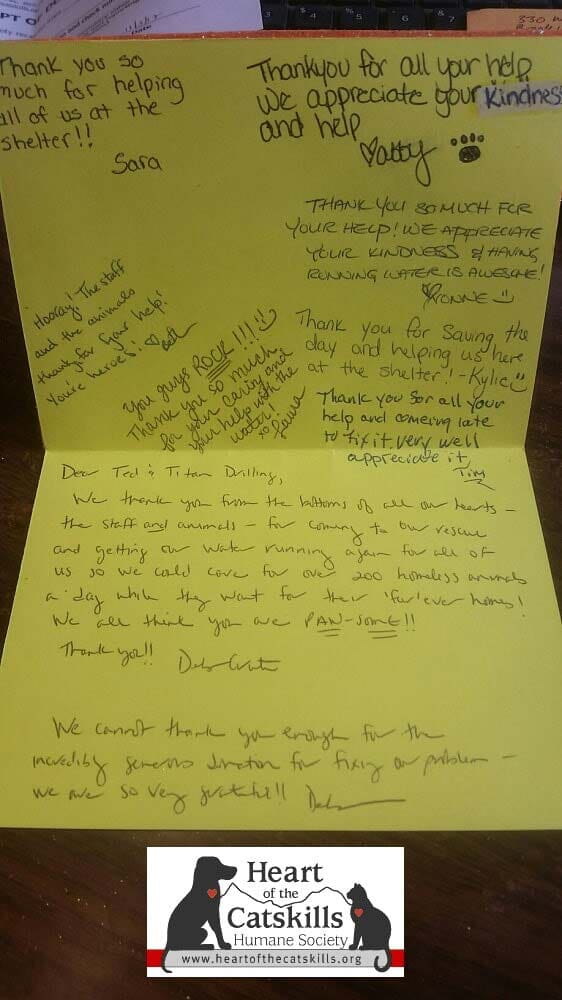 Thank you so
much for helping
all of us at the
shelter!!
Sara
Thankyou for all your help
We appreciate your Kindness
and help
Patty
THANK YOU SO MUCH FOR
YOUR HELP! WE APPRECIATE
YOUR KINDNESS & HAVING
RUNNING WATER IS AWESOME!
YVONNE
Hooray! The staff
and the animals
thank for your help!
You're heroes!
Beth
You guys ROCK!!!
Thank you so much
for your caring and
your help with the
water!
xo
Laura
Thank you for Saving the
day and helping us here
at the shelter! -Kylie
Thank you for all your
help and comeing late
to fix it. very well
appreciate it,
Tim
Dear Ted & Titan Drilling,
We thank you from the bottoms of all our hearts -
the staff and animals - for coming to our rescue
and getting our water running again for all of
us so we could care for over 200 homeless animals
a day while they wait for their 'fur'ever homes!
We all think you are PAW-SOME!!
Thank you!!
Deb
We cannot thank you enough for the
incredibly generous donation for fixing our problem -
we are so very grateful!! Deb
Heart
of the
Catskills
Humane Society
www.heartofthecatskills.org